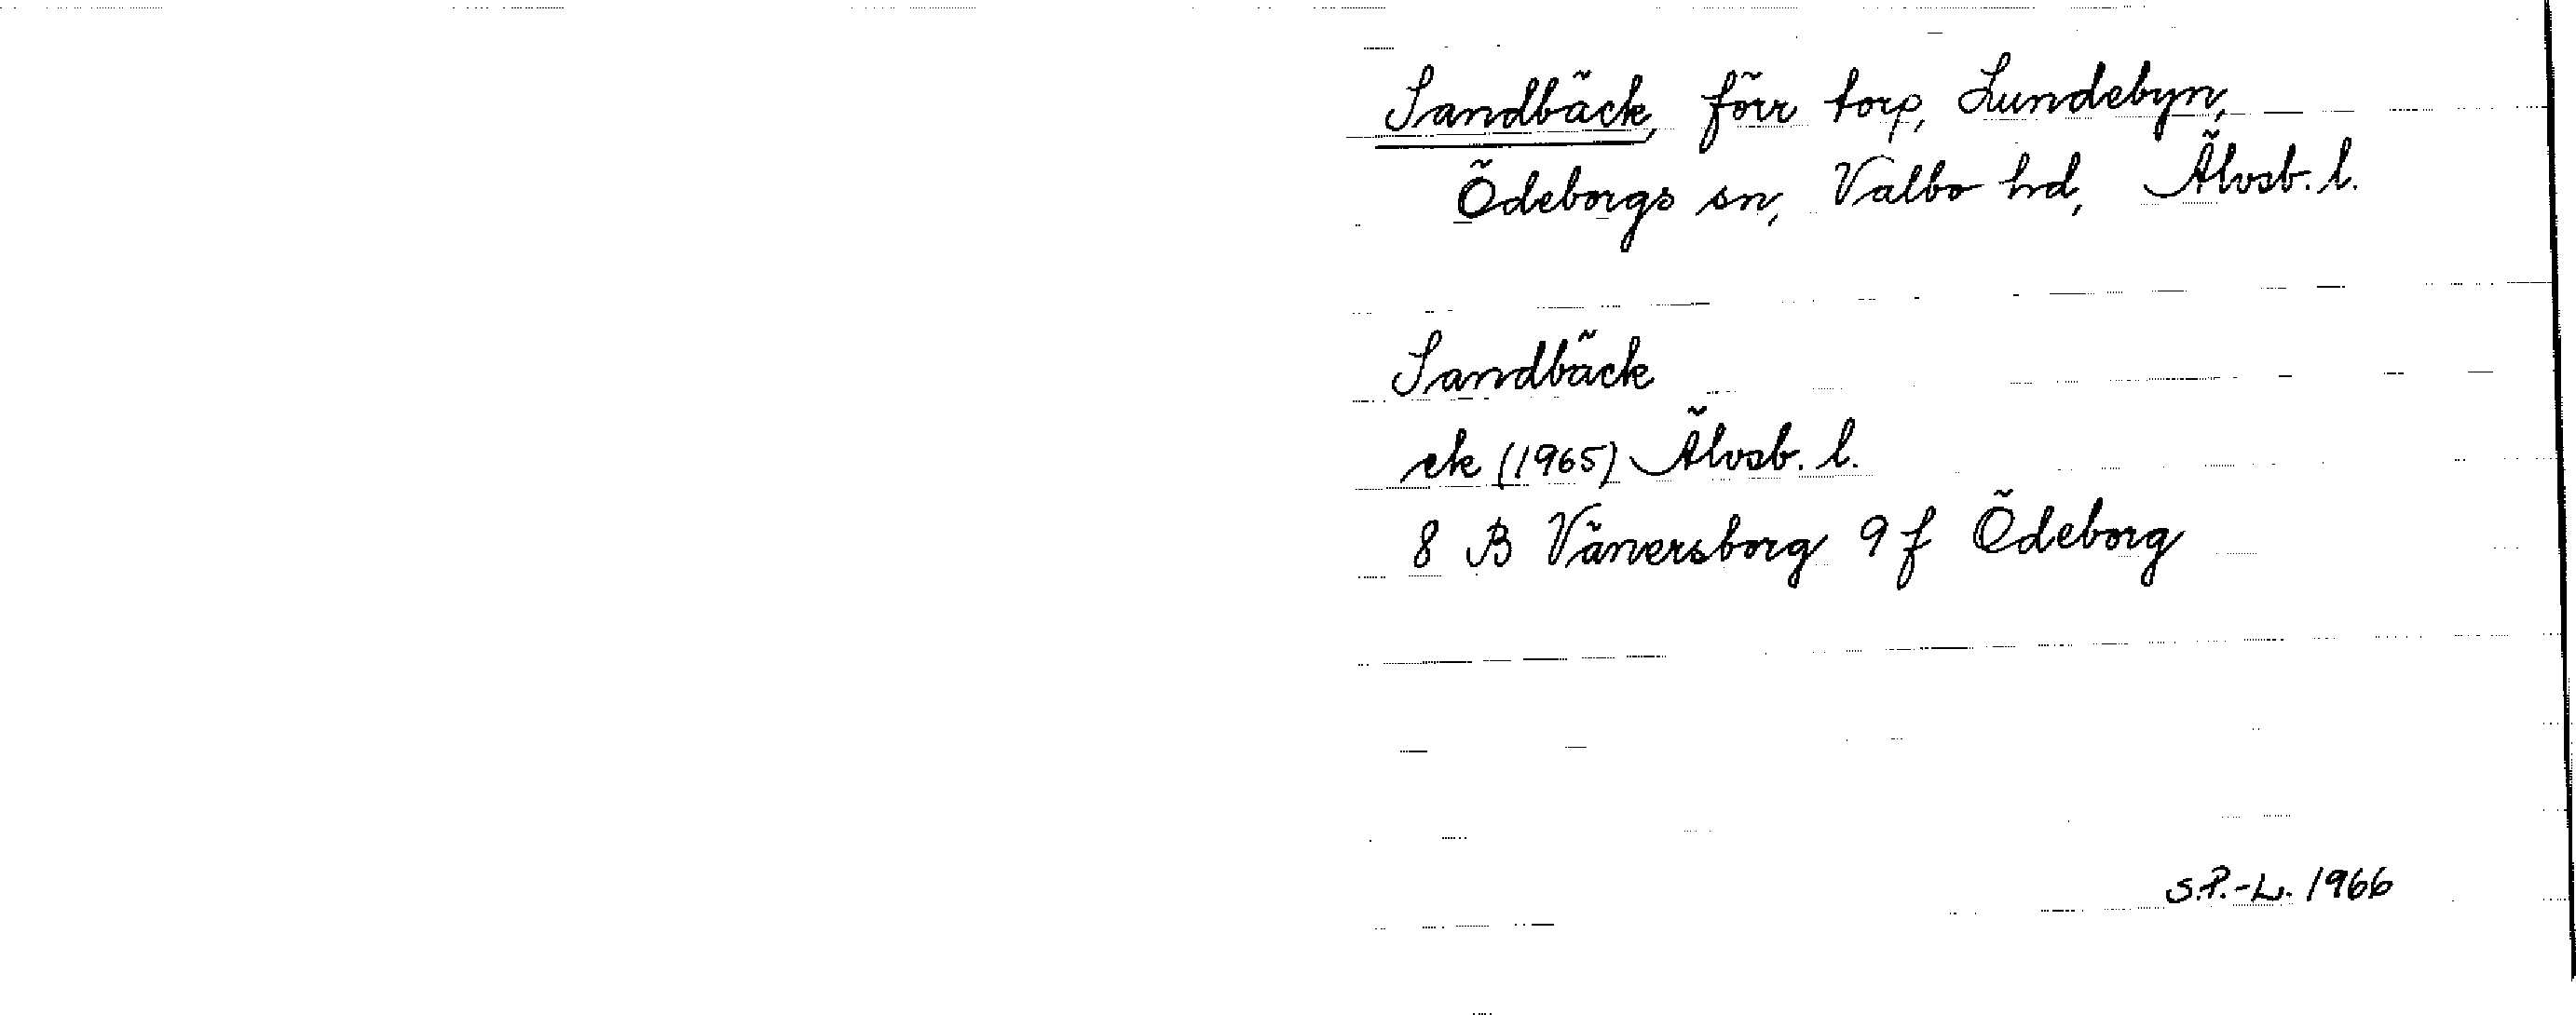 Sandbäck, förr torp, Lundebyn,
Ödeborgs sn, Valbo hd, Älvsb. l.
Sandbäck
ek (1965) Älvsb. l.
8 B Vänersborg 9 f Ödeborg
S.P.-L. 1966